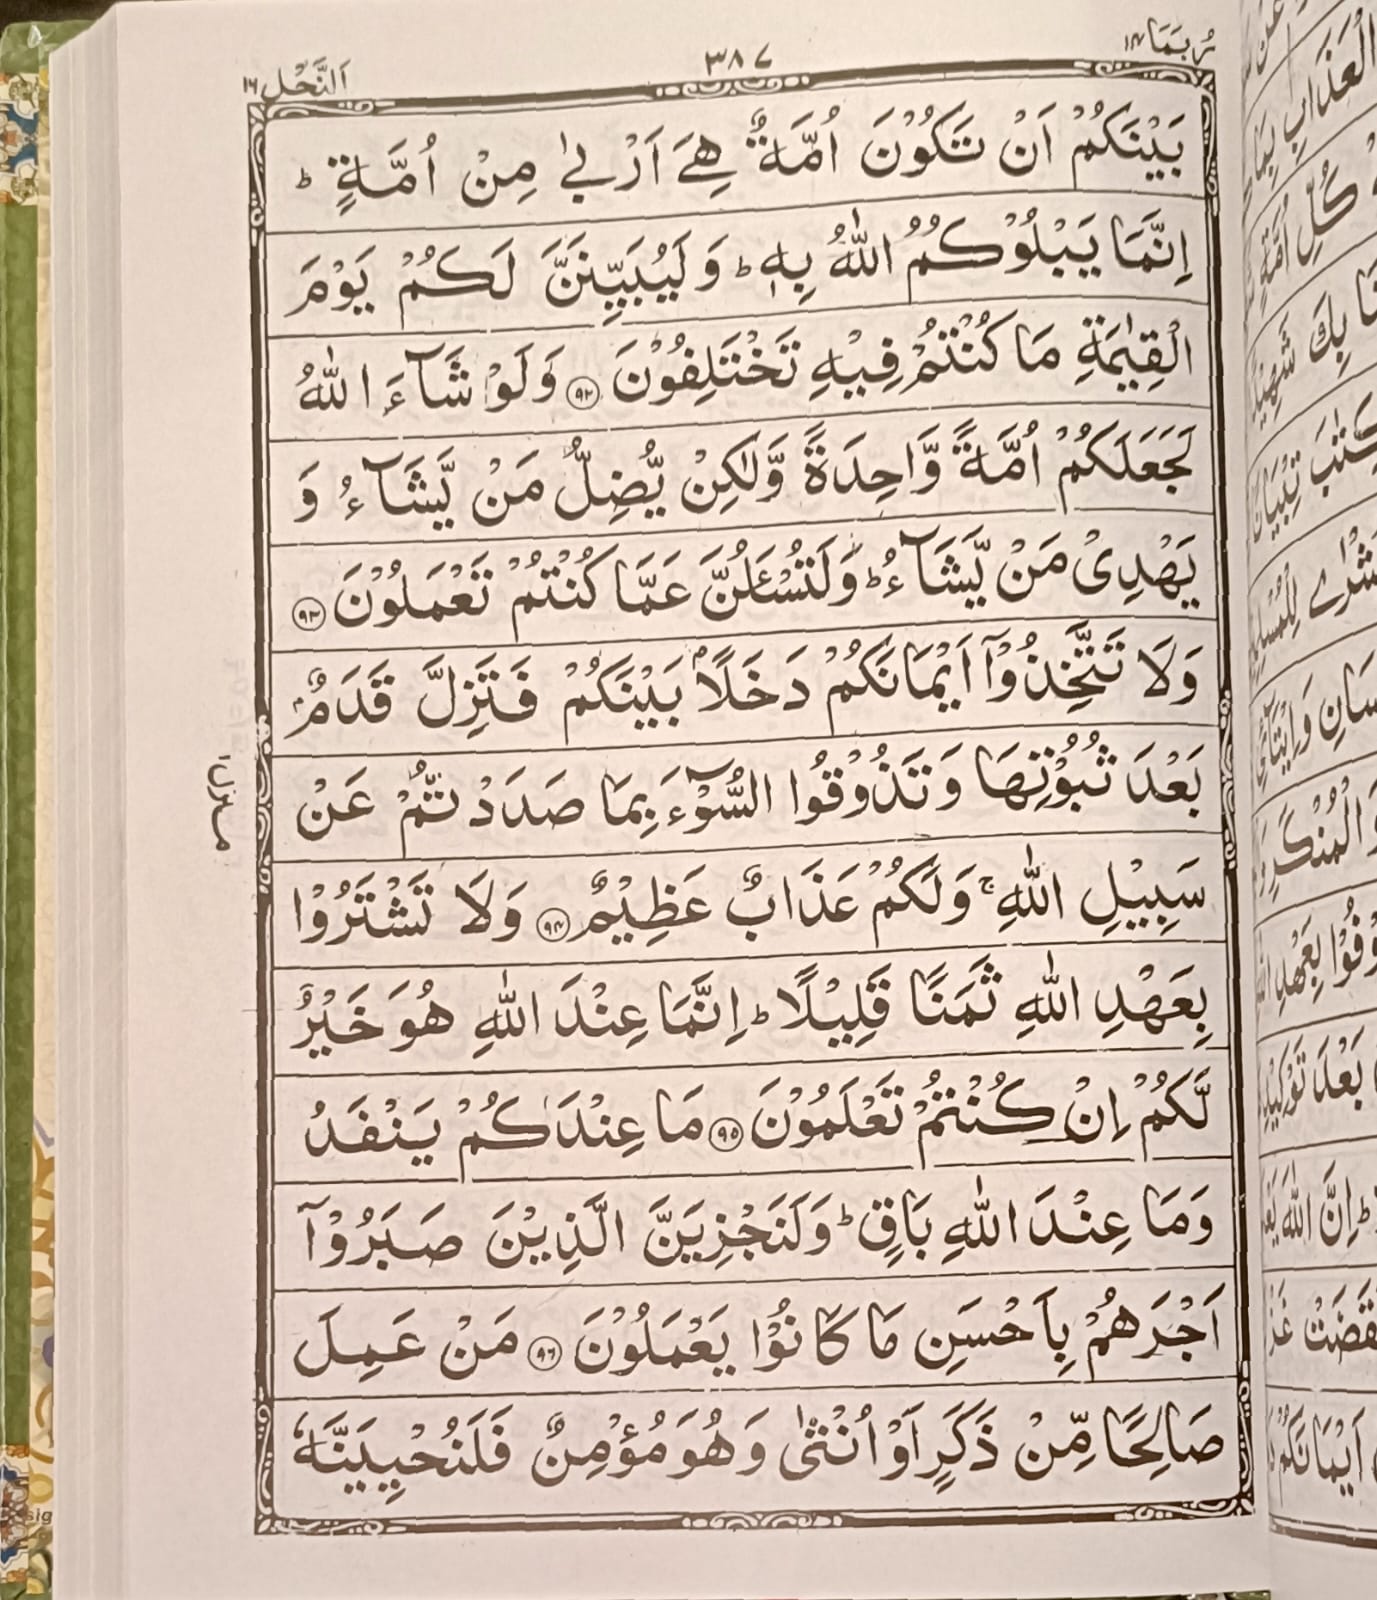 رُبَمَا ١٤
٣٨٧
اَلنَّحْل ١٦
بَيْنَكُمْ اَنْ تَكُوْنَ اُمَّةٌ هِيَ اَرْبٰى مِنْ اُمَّةٍ ؕ
اِنَّمَا يَبْلُوْكُمُ اللّٰهُ بِهٖ ؕ وَلَيُبَيِّنَنَّ لَكُمْ يَوْمَ
الْقِيٰمَةِ مَا كُنْتُمْ فِيْهِ تَخْتَلِفُوْنَ ﴿۹۲﴾ وَلَوْ شَآءَ اللّٰهُ
لَجَعَلَكُمْ اُمَّةً وَّاحِدَةً وَّلٰكِنْ يُّضِلُّ مَنْ يَّشَآءُ وَ
يَهْدِيْ مَنْ يَّشَآءُ ؕ وَلَتُسْـَٔلُنَّ عَمَّا كُنْتُمْ تَعْمَلُوْنَ ﴿۹۳﴾
وَلَا تَتَّخِذُوْۤا اَيْمَانَكُمْ دَخَلًاۢ بَيْنَكُمْ فَتَزِلَّ قَدَمٌۢ
بَعْدَ ثُبُوْتِهَا وَتَذُوْقُوا السُّوْٓءَ بِمَا صَدَدْتُّمْ عَنْ
سَبِيْلِ اللّٰهِ ۚ وَلَكُمْ عَذَابٌ عَظِيْمٌ ﴿۹۴﴾ وَلَا تَشْتَرُوْا
بِعَهْدِ اللّٰهِ ثَمَنًا قَلِيْلًا ؕ اِنَّمَا عِنْدَ اللّٰهِ هُوَ خَيْرٌ
لَّكُمْ اِنْ كُنْتُمْ تَعْلَمُوْنَ ﴿۹۵﴾ مَا عِنْدَكُمْ يَنْفَدُ
وَمَا عِنْدَ اللّٰهِ بَاقٍ ؕ وَلَنَجْزِيَنَّ الَّذِيْنَ صَبَرُوْۤا
اَجْرَهُمْ بِاَحْسَنِ مَا كَانُوْا يَعْمَلُوْنَ ﴿۹۶﴾ مَنْ عَمِلَ
صَالِحًا مِّنْ ذَكَرٍ اَوْ اُنْثٰى وَهُوَ مُؤْمِنٌ فَلَنُحْيِيَنَّهٗ